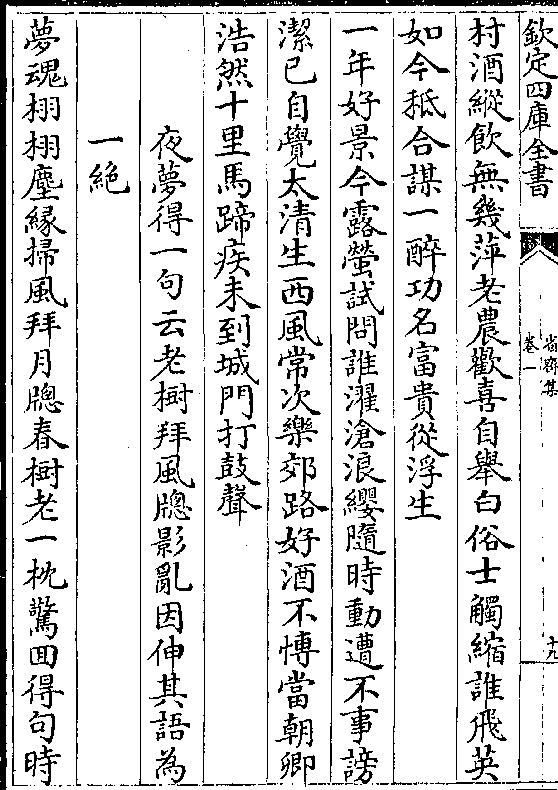 欽定四庫全書
卷一
十九
村酒縱飲無幾萍老農歡喜自舉白俗士觸縮誰飛英
如今秪合謀一醉功名富貴從浮生
一年好景今露螢試問誰濯滄浪纓隨時動遭不事謗
潔已自覺太清生西風常次樂郊路好酒不愽當朝卿
浩然十里馬蹄疾未到城門打鼓聲
夜夢得一句云老樹拜風牕影亂因伸其語為
一絶
夢魂栩栩塵縁掃風拜月牕春樹老一枕驚回得句時